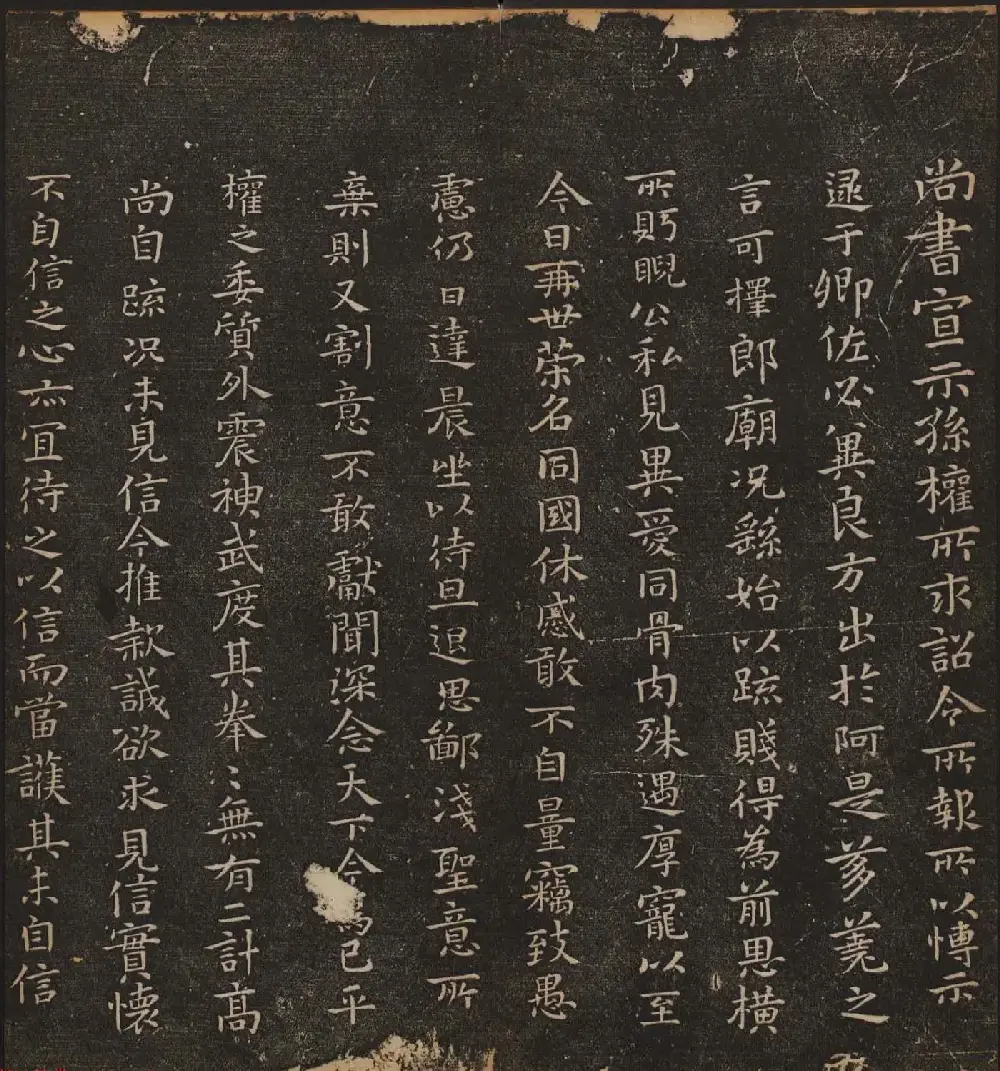 尚書宣示孫權所求詔令所報所以慱示
逯于卿佐必兾良方出於阿是芻蕘之
言可擇郎廟况繇始以踈賤得為前恩橫
所䀛睨公私見異愛同骨肉殊遇厚寵以至
今日再世榮名同國休慼敢不自量竊致愚
慮仍日達晨坐以待旦退思鄙淺聖意所
棄則又割意不敢獻聞深念天下今為已平
權之委質外震神武度其拳〻無有二計高
尚自踈况未見信今推款誠欲求見信實懷
不自信之心亦宜待之以信而當護其未自信